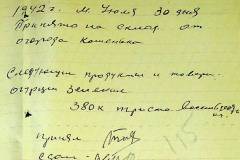 1942 г. м. Июля 30 дня
Принято на склад от
огорода Кошенкова
Следующии продукты и новую:
огурци зеленые
380 к триста восемьдесят кг.
принял
сдал
115